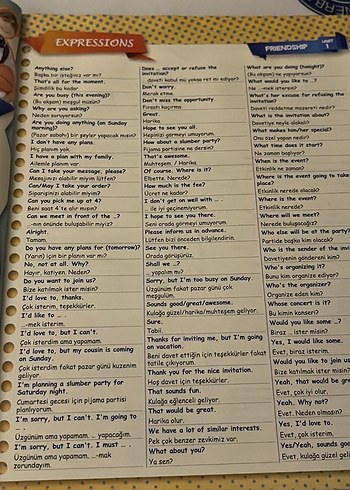 EXPRESSIONS
FRIENDSHIP
UNIT
1
Anything else?
Başka bir isteğiniz var mı?
That's all for the moment.
Şimdilik bu kadar
Are you busy (this evening)?
(Bu akşam) meşgul müsün?
Why are you asking?
Neden soruyorsun?
Are you doing anything (on Sunday
morning)?
(Pazar sabahı) bir şeyler yapacak mısın?
I don't have any plans.
Hiç planım yok
I have a plan with my family.
Ailemle planım var.
Can I take your message, please?
Mesajınızı alabilir miyim lütfen?
Can/May I take your order?
Siparişinizi alabilir miyim?
Can you pick me up at 4?
Beni saat 4'te alır mısın?
Can we meet in front of the ..?
..nın önünde buluşabilir miyiz?
Alright.
Tamam.
Do you have any plans for (tomorrow)?
(Yarın) için bir planın var mı?
No, not at all. Why?
Hayır, katiyen. Neden?
Do you want to join us?
Bize katılmak ister misin?
I'd love to, thanks.
Çok isterim, teşekkürler.
I'd like to ... .
...-mek isterim.
I'd love to, but I can't.
Çok isterdim ama yapamam.
I'd love to, but my cousin is coming
on Sunday.
Çok isterdim fakat pazar günü kuzenim
geliyor.
I'm planning a slumber party for
Saturday night.
Cumartesi gecesi için pijama partisi
planlıyorum.
I'm sorry, but I can't. I'm going to
... .
Üzgünüm ama yapamam. ... yapacağım.
I'm sorry, but I can't. I must ... .
Üzgünüm ama yapamam. ...-mak
zorundayım.
Does ... accept or refuse the
invitation?
... daveti kabul mü yoksa ret mi ediyor?
Don't worry.
Merak etme.
Don't miss the opportunity.
Fırsatı kaçırma
Great.
Harika.
Hope to see you all.
Hepinizi görmeyi umuyorum.
How about a slumber party?
Pijama partisine ne dersin?
That's awesome.
Muhteşem. / Harika.
Of course. Where is it?
Elbette. Nerede?
How much is the fee?
Ücret ne kadar?
I don't get on well with ... .
... ile iyi geçinemiyorum.
I hope to see you there.
Seni orada görmeyi umuyorum.
Please inform us in advance.
Lütfen bizi önceden bilgilendirin.
See you there.
Orada görüşürüz.
Shall we ..?
...yapalım mı?
Sorry, but I'm too busy on Sunday.
Üzgünüm fakat pazar günü çok
meşgulüm.
Sounds good/great/awesome.
Kulağa güzel/harika/muhteşem geliyor.
Sure.
Tabii.
Thanks for inviting me, but I'm going
on vacation.
Beni davet ettiğin için teşekkürler fakat
tatile çıkıyorum.
Thank you for the nice invitation.
Hoş davet için teşekkürler.
That sounds fun.
Kulağa eğlenceli geliyor.
That would be great.
Harika olur.
We have a lot of similar interests.
Pek çok benzer zevkimiz var.
What about you?
Ya sen?
What are you doing (tonight)?
(Bu akşam) ne yapıyorsun?
What would you like to ..?
Ne ...-mek istersin?
What's her excuse for refusing the
invitation?
Daveti reddetme mazereti nedir?
What is the invitation about?
Davetiye neyle alakalı?
What makes him/her special?
Onu özel yapan nedir?
What time does it start?
Ne zaman başlıyor?
When is the event?
Etkinlik ne zaman?
Where is the event going to take
place?
Etkinlik nerede olacak?
Where is the event?
Etkinlik nerede?
Where will we meet?
Nerede buluşacağız?
Who else will be at the party?
Partide başka kim olacak?
Who is the sender of the
Davetiyenin göndereni kim?
Who's organizing it?
Bunu kim organize ediyor?
Who's the organizer?
Organize eden kim?
Whose concert is it?
Bu kimin konseri?
Would you like some ..?
Biraz ... ister misin?
Yes, I would like some.
Evet, biraz isterim.
Would you like to join us
Bize katılmak ister misin
Yeah, that would be
Evet, çok iyi olur.
Yeah. Why not?
Evet. Neden olmasın?
Yes, I'd love to.
Evet, çok isterim.
Yes/Yeah, sounds
Evet, kulağa güzel